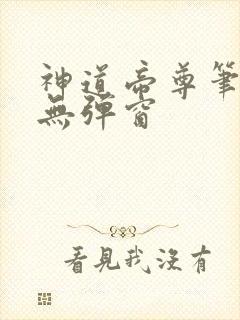 神道帝尊筆
無彈窗
看見我沒有